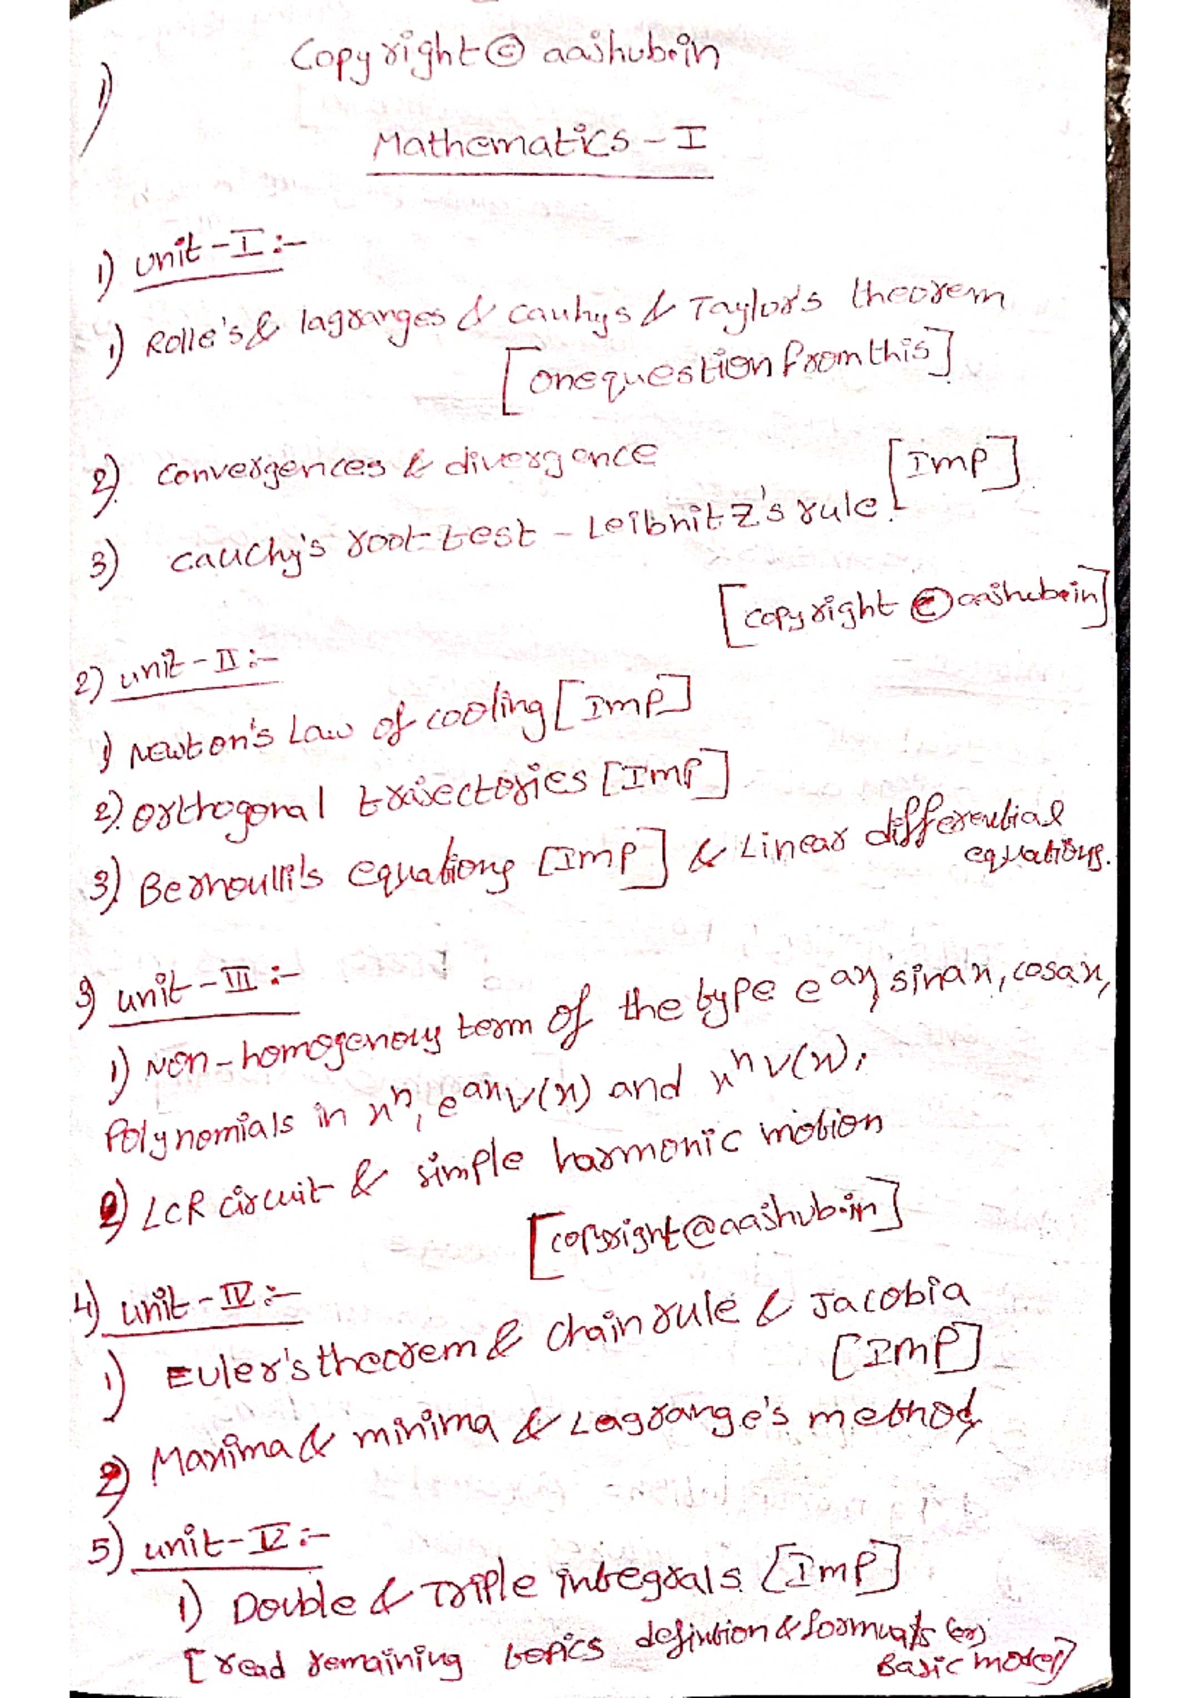 Copyright © aashub.in
1)
Mathematics - I
1) unit - I :-
1) Rolle's & lagranges & Cauhys & Taylor's theorem
[one question from this]
2) Convergences & divergence [Imp]
3) Cauchy's root test - Leibnitz's rule.
[copyright © aashub.in]
2) unit - II :-
1) Newton's Law of cooling [Imp]
2) Orthogonal trajectories [Imp]
3) Bernoulli's equations [Imp] & Linear differential
equations.
3) unit - III :-
1) Non-homogenous term of the type e^ax, sinax, cosax,
Polynomials in x^n, e^ax v(x) and x^n v(x).
2) LCR circuit & simple harmonic motion
[copyright @ aashub.in]
4) unit - IV :-
1) Euler's theorem & Chain rule & Jacobia
[Imp]
2) Maxima & minima & Lagrange's method
5) unit - V :-
1) Double & Triple integrals [Imp]
[read remaining topics defintion & formuals (or)
Basic model]